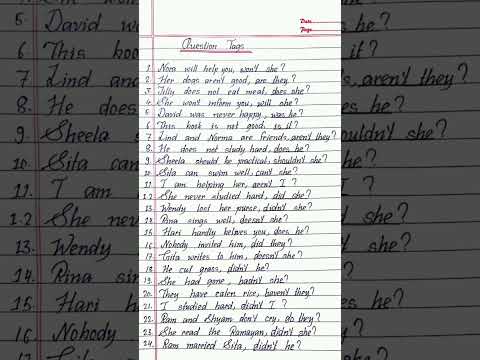 Date
Page
Question Tags
1. Nora will help you, won't she?
2. Her dogs aren't good, are they?
3. Jilly does not eat meat, does she?
4. She won't inform you, will she?
5. David was never happy, was he?
6. This book is not good, is it?
7. Lind and Norma are friends, aren't they?
8. He does not study hard, does he?
9. Sheela should be practical, shouldn't she?
10. Sita can swim well, can't she?
11. I am helping her, aren't I?
12. She never studied hard, did she?
13. Wendy lost her purse, didn't she?
14. Rina sings well, doesn't she?
15. Hari hardly believes you, does he?
16. Nobody invited him, did they?
17. Gita writes to him, doesn't she?
18. He cut grass, didn't he?
19. She had gone, hadn't she?
20. They have eaten rice, haven't they?
21. I studied hard, didn't I?
22. Ram and Shyam don't cry, do they?
23. She read the Ramayan, didn't she?
24. Ram married Sita, didn't he?
5. David wa
6. This boo
7. Lind and
8. He does
9. Sheela
10. Sita can
11. I am
12. She neve
13. Wendy
14. Rina sin
15. Hari h
16. Nobody
he?
it?
aren't they?
he?
uldn't she?
she?
she?
he?